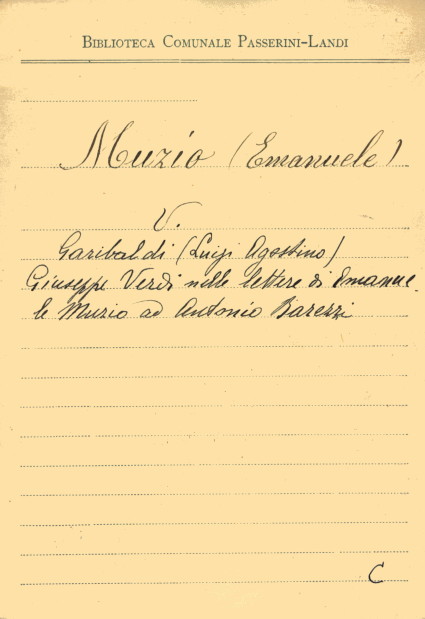 BIBLIOTECA COMUNALE PASSERINI-LANDI
Muzio (Emanuele)
V.
Garibaldi (Luigi Agostino)
Giuseppe Verdi nelle lettere di Emanue-
le Muzio ad Antonio Barezzi
C